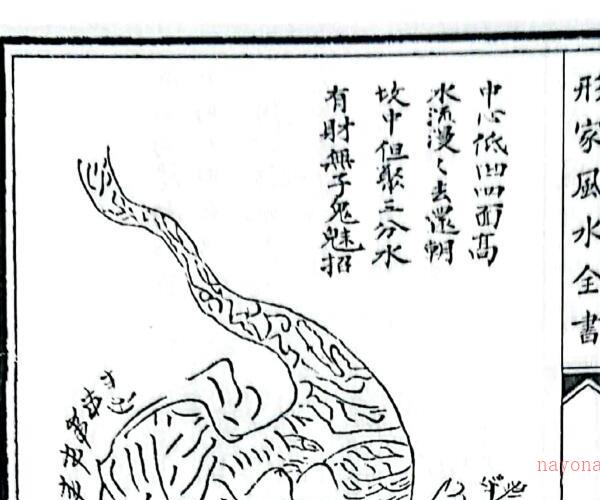 形家風水全書
中心低凹四面高
水流漫〻去還朝
坟中但聚三分水
有財無子鬼魅招
nayona